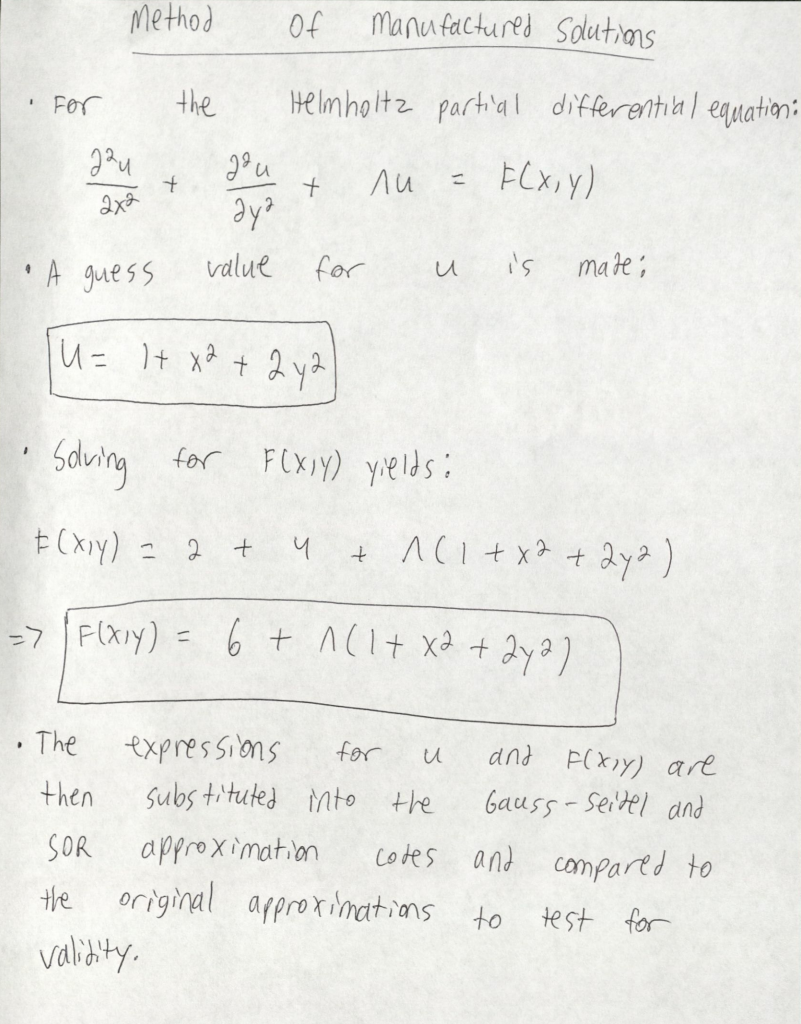 Method of Manufactured Solutions
• For the Helmholtz partial differential equation:
∂²u/∂x² + ∂²u/∂y² + Λu = F(x,y)
• A guess value for u is made:
u = 1 + x² + 2y²
• Solving for F(x,y) yields:
F(x,y) = 2 + 4 + Λ(1 + x² + 2y²)
=> F(x,y) = 6 + Λ(1 + x² + 2y²)
• The expressions for u and F(x,y) are
then substituted into the Gauss-Seidel and
SOR approximation codes and compared to
the original approximations to test for
validity.